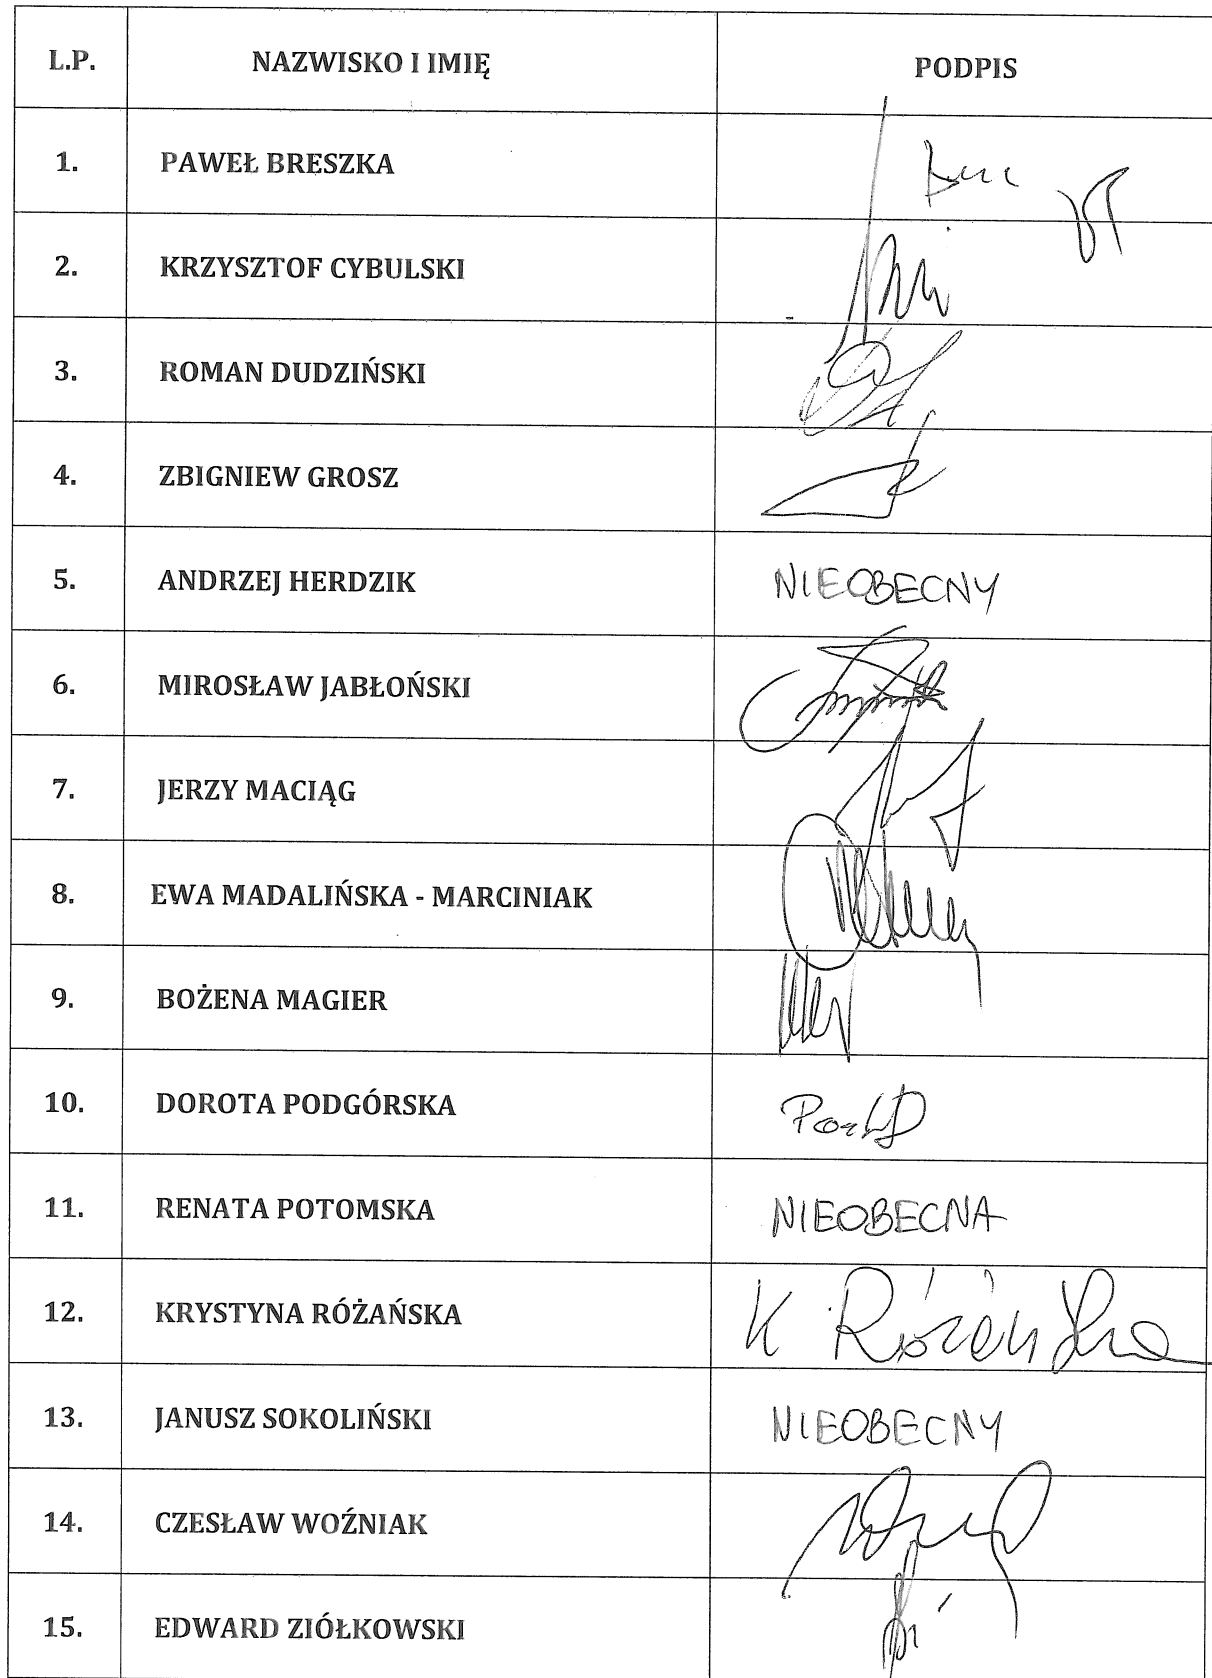 L.P. NAZWISKO I IMIĘ PODPIS
1. PAWEŁ BRESZKA
2. KRZYSZTOF CYBULSKI
3. ROMAN DUDZIŃSKI
4. ZBIGNIEW GROSZ
5. ANDRZEJ HERDZIK NIEOBECNY
6. MIROSŁAW JABŁOŃSKI
7. JERZY MACIĄG
8. EWA MADALIŃSKA - MARCINIAK
9. BOŻENA MAGIER
10. DOROTA PODGÓRSKA
11. RENATA POTOMSKA NIEOBECNA
12. KRYSTYNA RÓŻAŃSKA K
13. JANUSZ SOKOLIŃSKI NIEOBECNY
14. CZESŁAW WOŹNIAK
15. EDWARD ZIÓŁKOWSKI